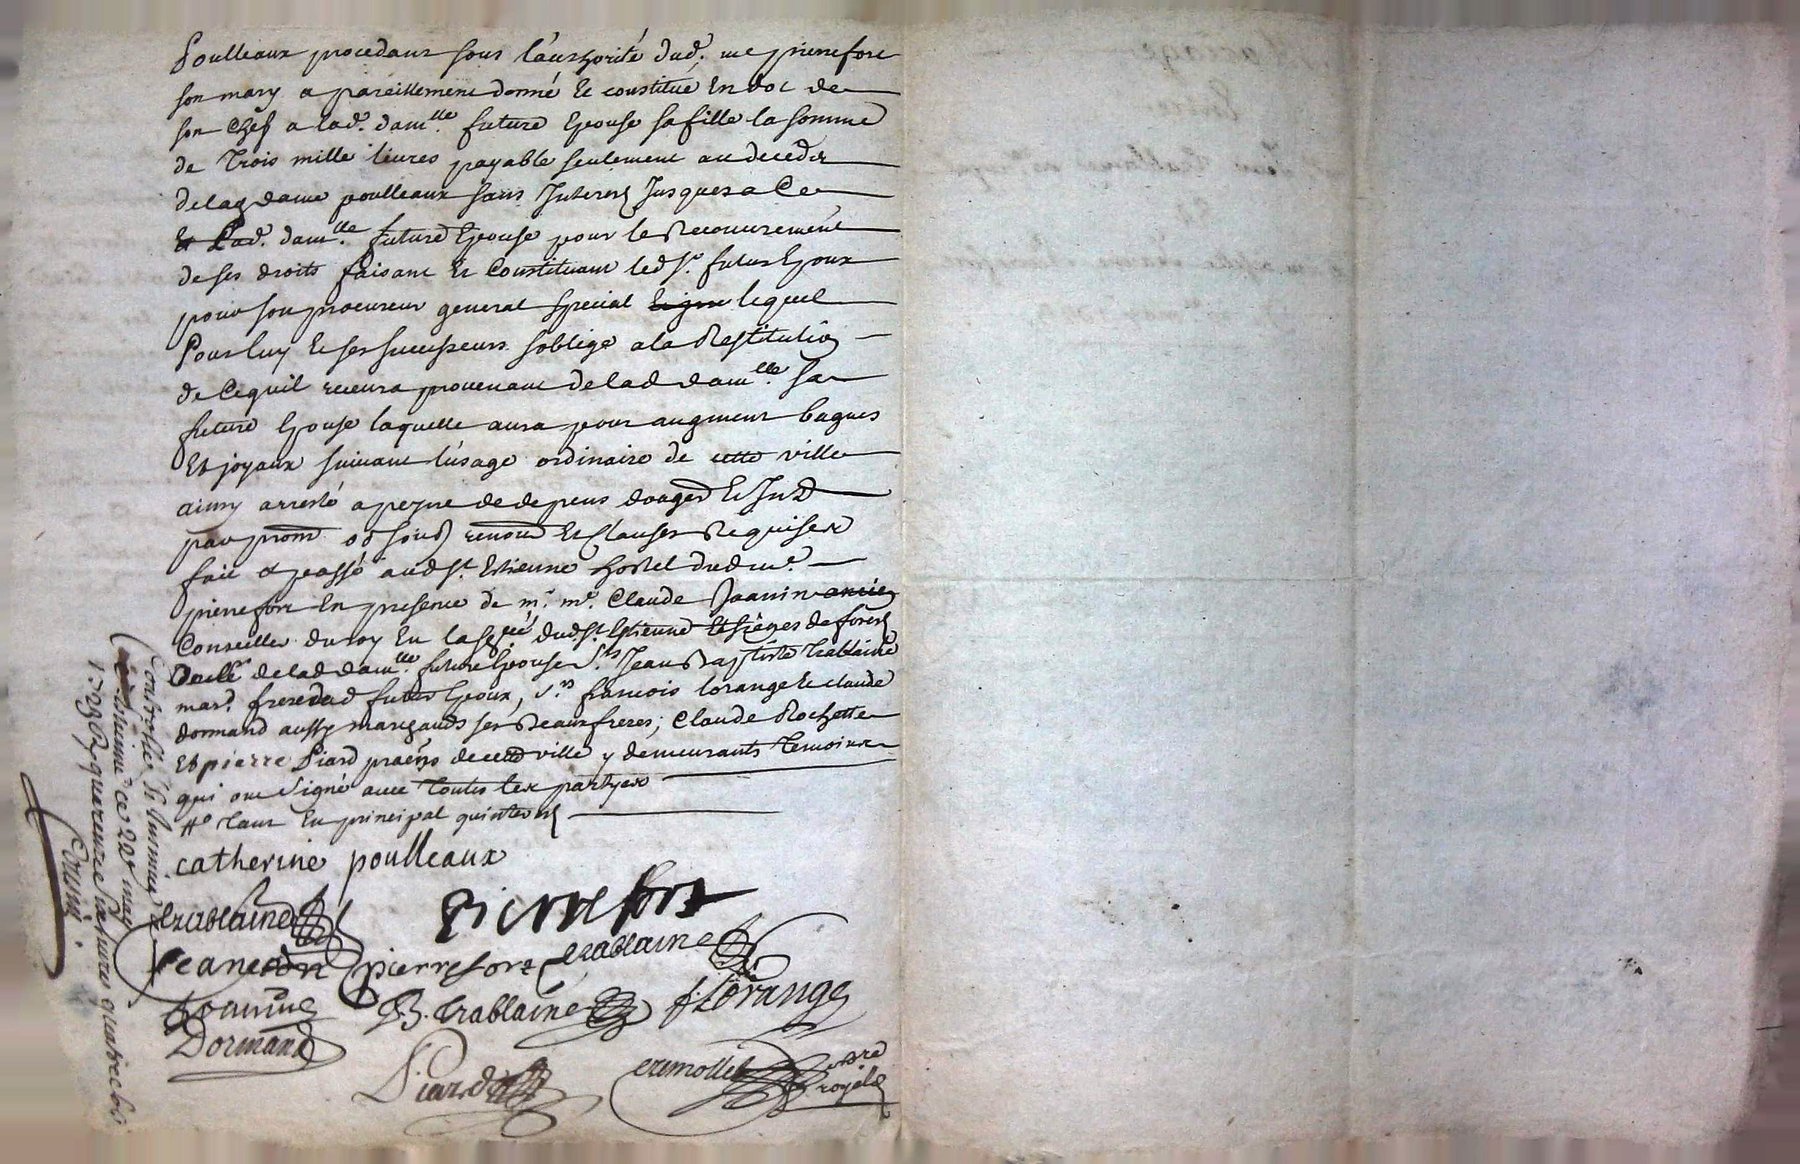 Poulleaux procedant sous l'authorité dud. me pierrefort
son mary a pareillement donné et constitué en dot de
son chef a lad. dam.lle future Epouse sa fille la somme
de trois mille livres payable seulement au deceds
de lad dame poulleaux sans Interest Jusques a Ce
Et Lad. dam.lle future Epouse pour le Recouvrement
de ses droits faisant Et Constituant led sr. futur Epoux
pour son procureur general special lequel
Pour luy Et ses successeurs soblige a la Restitution
de Cequil recevra provenant de lad dam.lle sa
future Epouse laquelle aura pour augment bagues
Et joyaux suivant l'usage ordinaire de cette ville
ainsy arresté a peyne de depens domages Et Int
par prom. renon Et Clauses Requises
fait et passé aud St. Estienne hostel dud me.
pierrefort En presence de mr. me. Claude Joanin
Conseiller du roy En dud. St. Estienne de forest
Oncle de lad dam.lle future Epouse Srs. Jean Baptiste trablaine
mard. frere dud futur Epoux, Srs françois lorange Et claude
dormand aussy marchands ses Beaux freres; Claude Rochette
Et pierre Piard pratns de cette ville y demeurants temoins
qui ont signé avec toutes les partyes
tant En principal quinterest
catherine poulleaux
trablaine
Pierrefort
Pierrefort trablaine
Joanin J B. trablaine f. Lorange
Dormand
Piard
royal
Controllé
Estienne ce 22e may
quarente six livres quatre